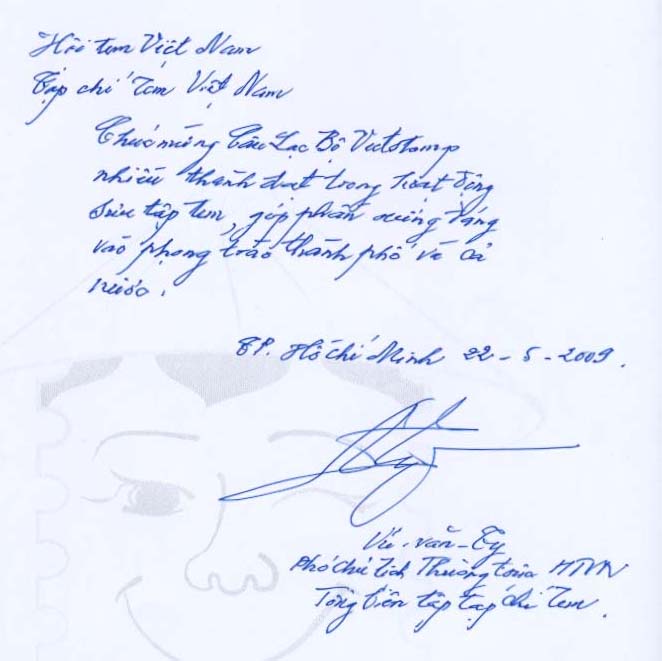 Hội tem Việt Nam
Tạp chí Tem Việt Nam
Chúc mừng Câu Lạc Bộ Vietstamp
nhiều thành đạt trong hoạt động
sưu tập tem, góp phần xứng đáng
vào phong trào thành phố và cả
nước.
TP. Hồ Chí Minh 22 - 5 - 2009.
Vũ - văn - Tỵ
Phó chủ tịch Thường trực HTVN
Tổng biên tập tạp chí Tem.